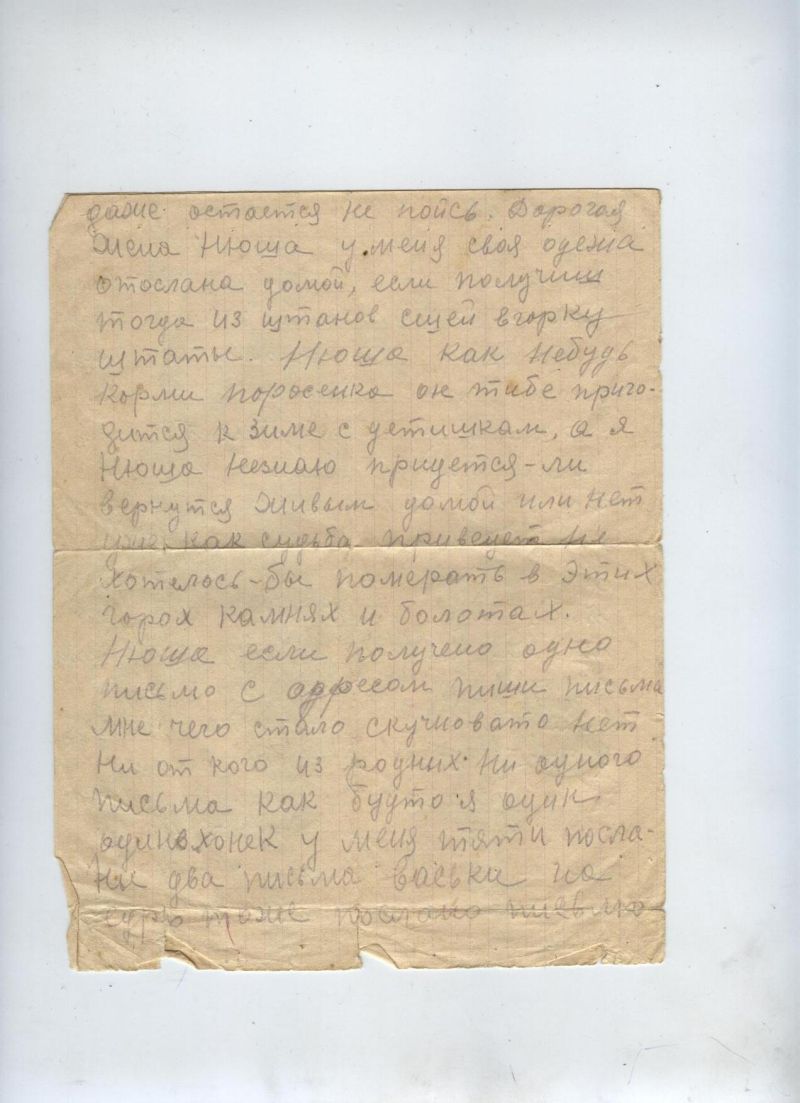 даже остается не поись. Дорогая
Жена Нюша у меня своя одежа
отослана домой, если получиш
тогда из штанов сшей вгорку
штаты. Нюша как небудь
корми поросенка он тибе приго-
дится к зиме с детишкам, а я
Нюша незнаю придется-ли
вернутся живым домой или нет
уже как судьба приведет не
хотелось-бы помирать в этих
горах камнях и болотах.
Нюша если получено одно
письмо с адресом пиши письма
мне чего стало скучновато нет
ни от кого из родных ни одного
письма как будто я один
одинохонек у меня тяти посла-
ни два письма васьки на
тоже послано письмо